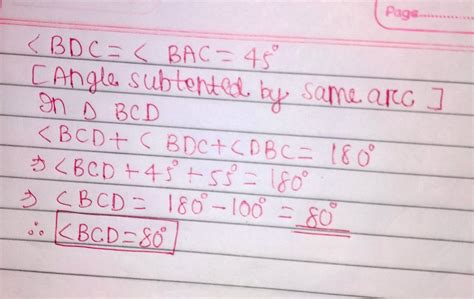 Page...............
<BDC = < BAC = 45°
[Angle subtented by same arc]
In Δ BCD
<BCD + < BDC + <DBC = 180°
⇒ <BCD + 45° + 55° = 180°
⇒ <BCD = 180° - 100° = 80°
∴ <BCD = 80°